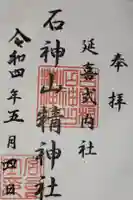 奉拝
延喜式内社
石神山精神社
令和四年五月四日